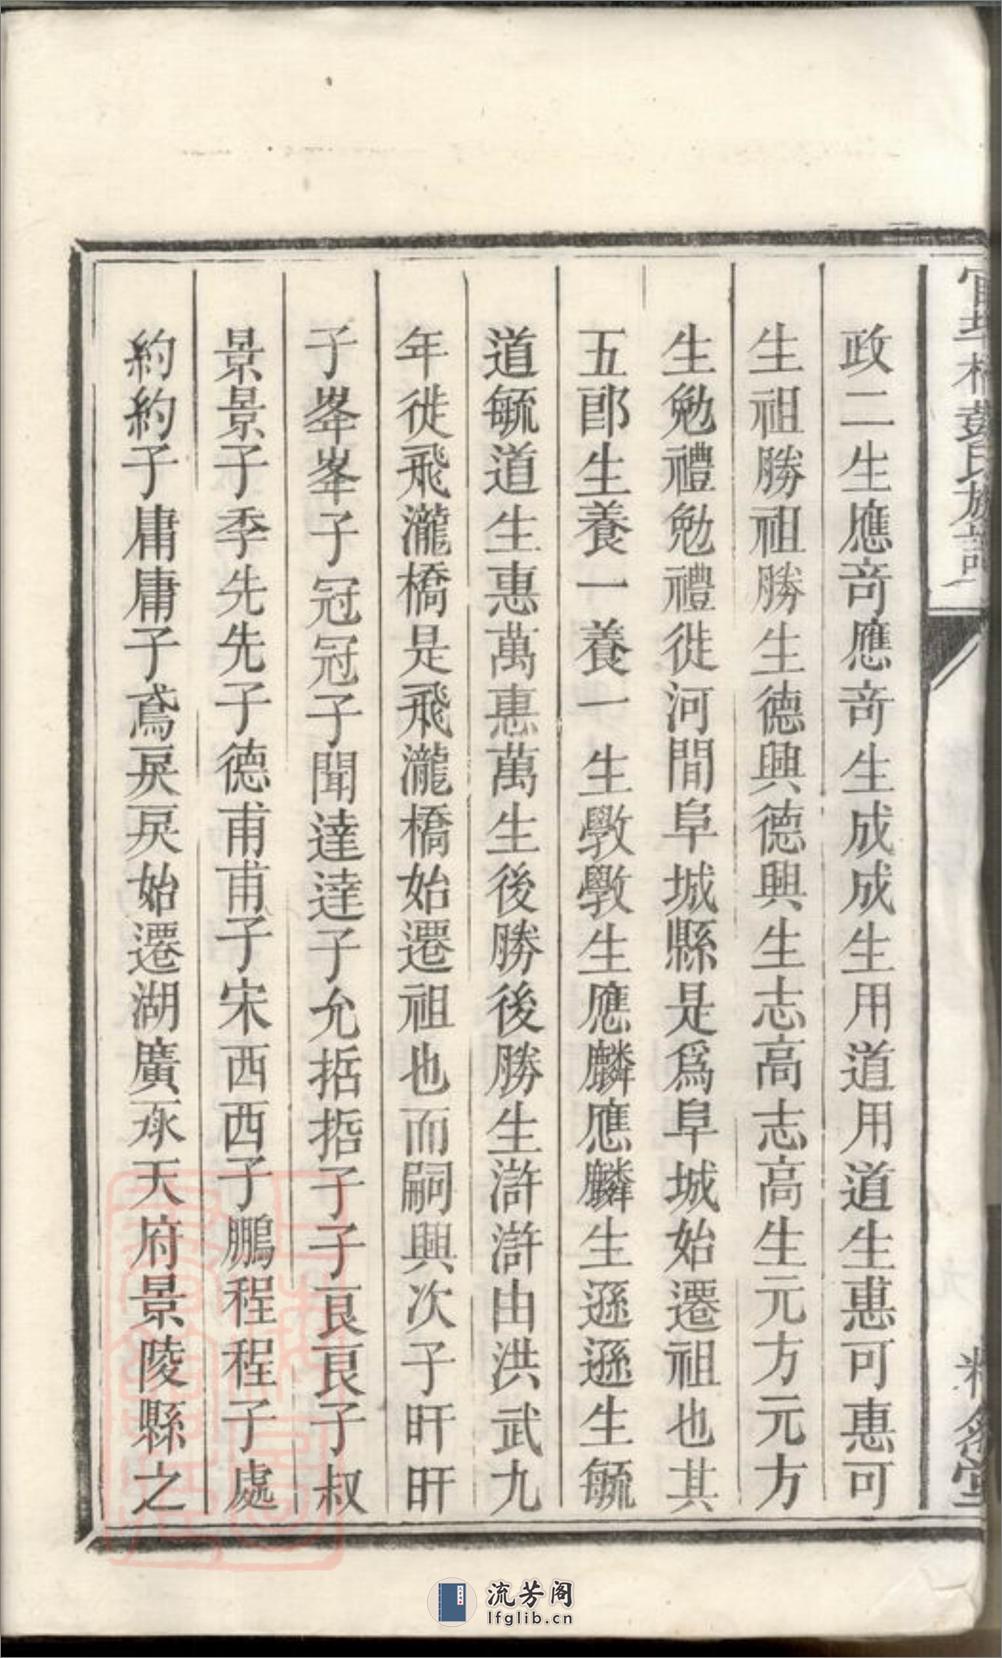 政二生應竒應竒生成成生用道用道生惠可惠可
生祖勝祖勝生德興德興生志高志高生元方元方
生勉禮勉禮徙河間阜城縣是爲阜城始遷祖也其
五郎生養一養一生斆斆生應麟應麟生遜遜生毓
道毓道生惠萬惠萬生後勝後勝生滸滸由洪武九
年徙飛瀧橋是飛瀧橋始遷祖也而嗣興次子旰旰
子峯峯子冠冠子聞達達子允括括子子良良子叔
景景子季先先子德甫甫子宋西西子鵬程程子處
約約子庸庸子鳶戾戾始遷湖廣承天府景陵縣之
流芳阁
lfglib.cn